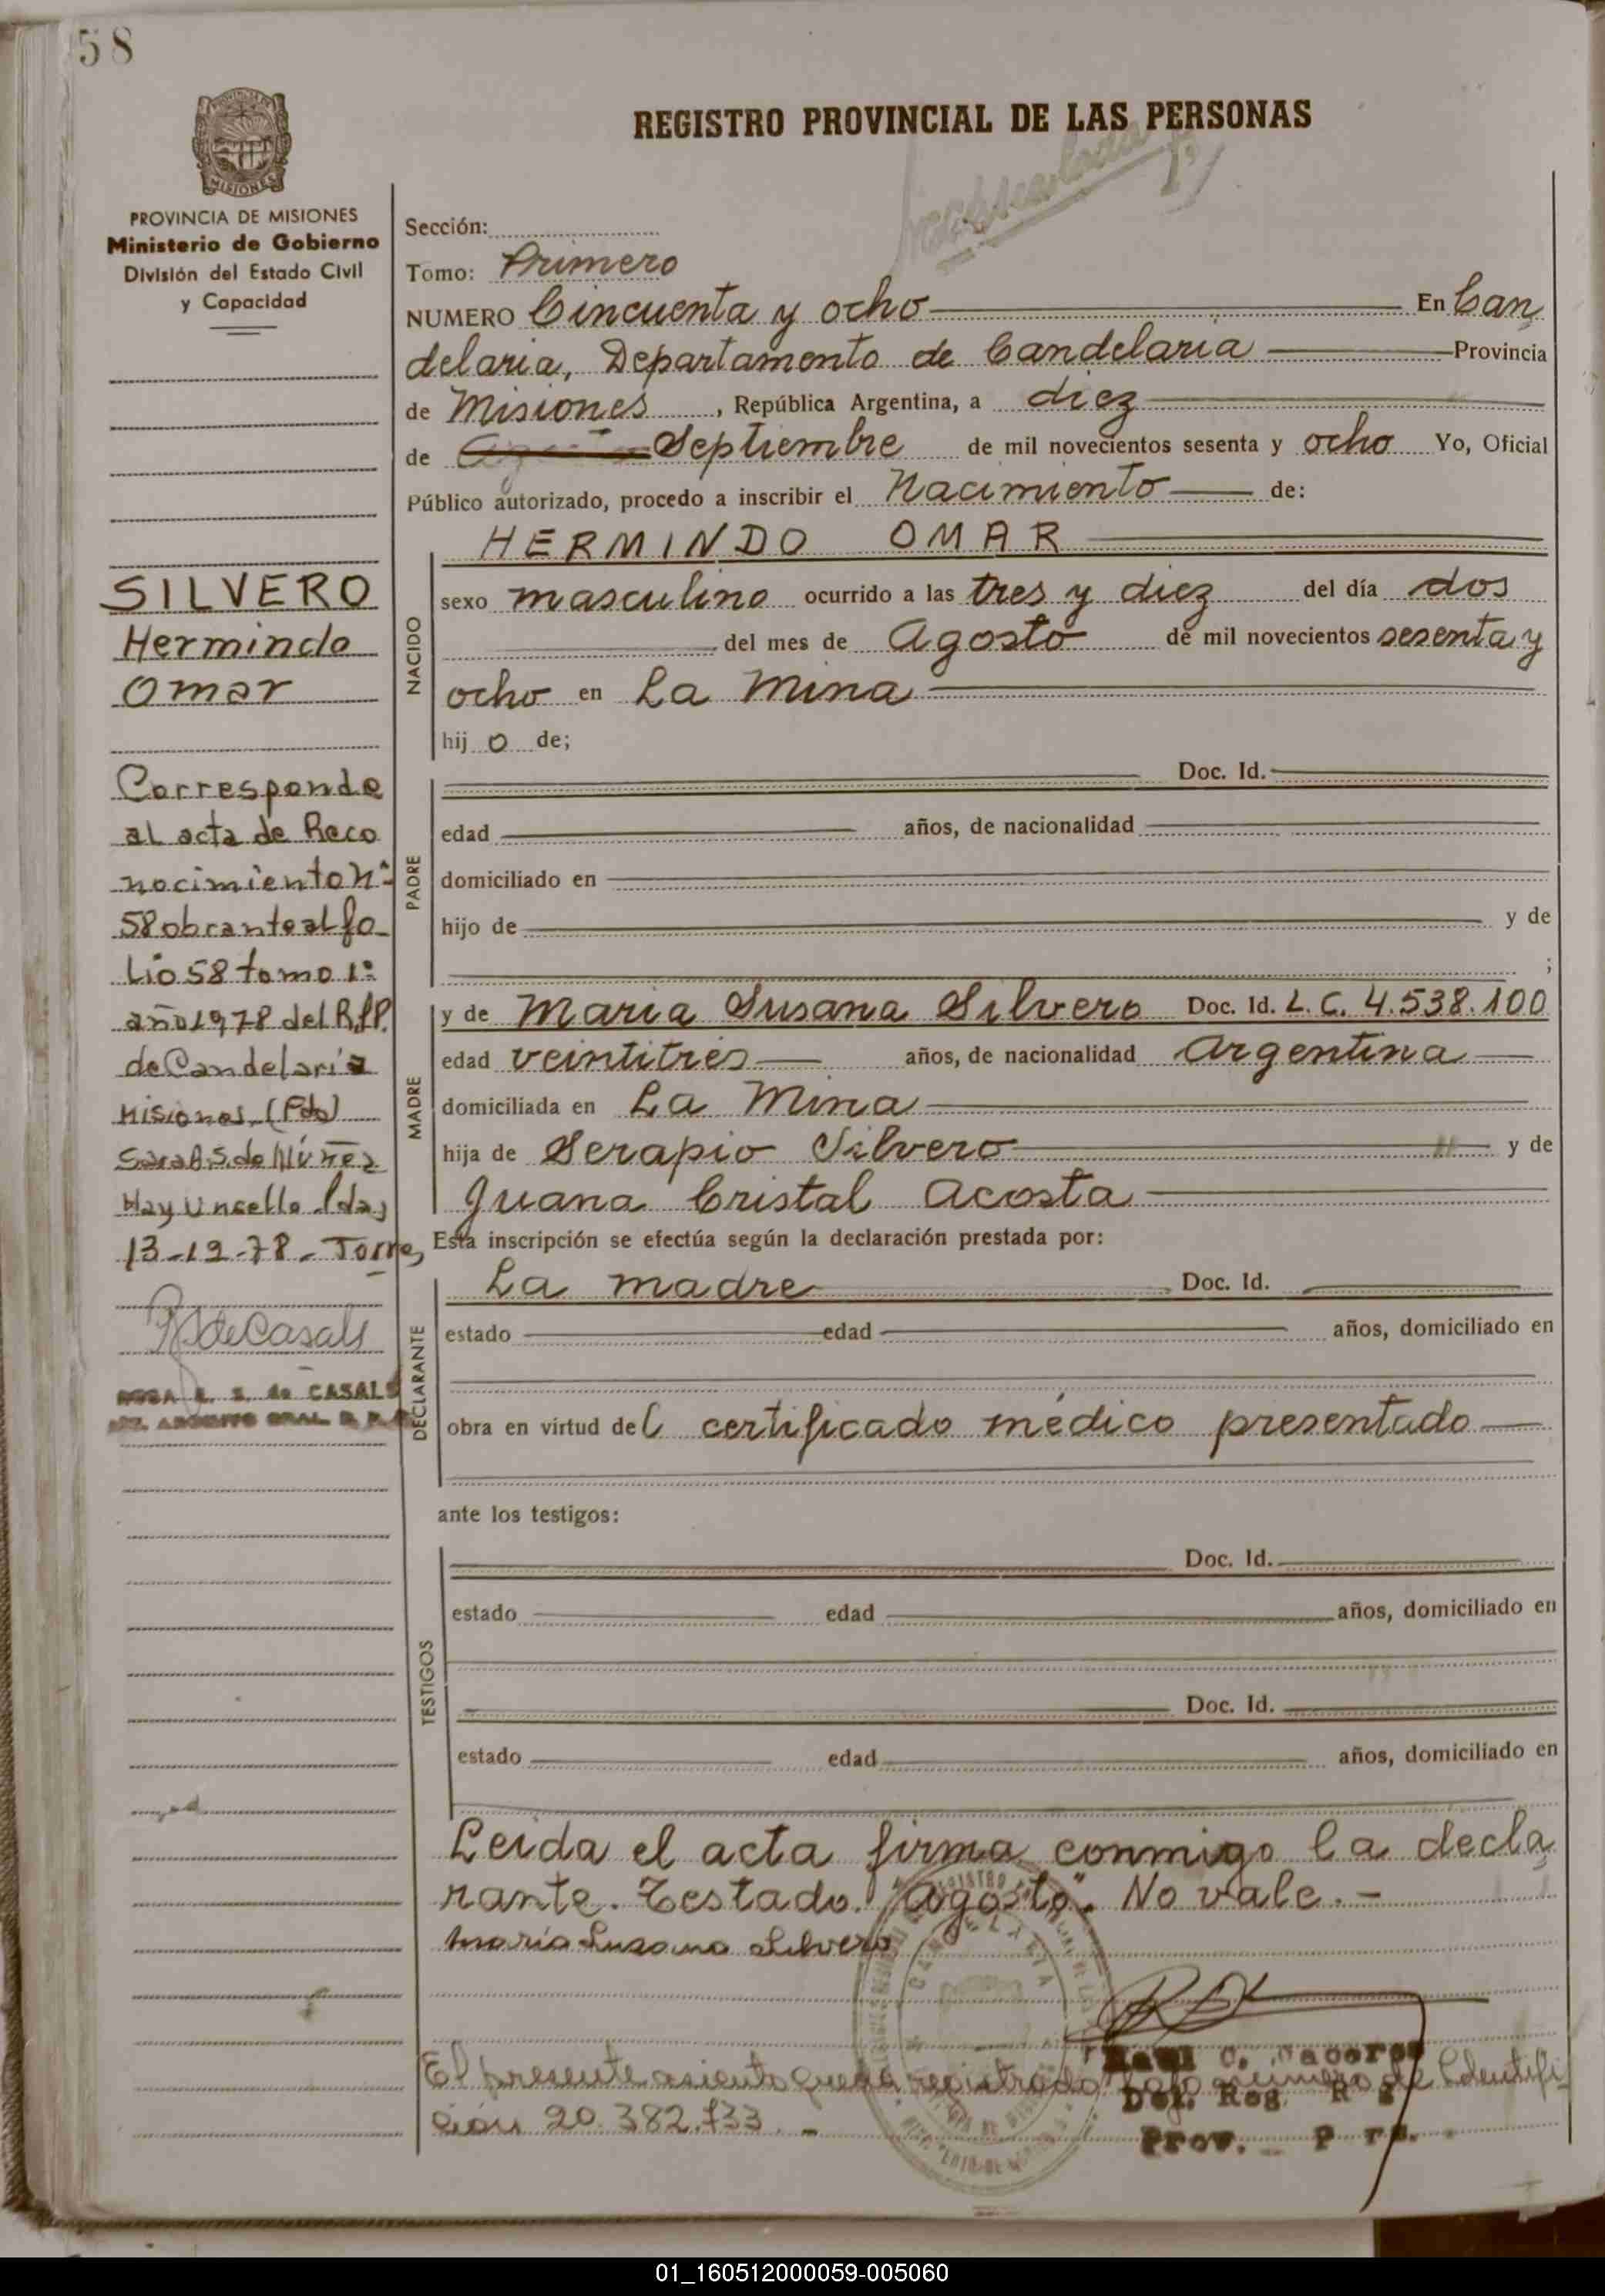 58
REGISTRO PROVINCIAL DE LAS PERSONAS
PROVINCIA DE MISIONES
Ministerio de Gobierno
División del Estado Civil
y Capacidad
SILVERO
Hermindo
Omar
Corresponde
al acta de Reco
nocimiento Nº
58 obrante al fo_
lio 58 tomo 1º
año 1978 del R.P.P.
de Candelaria
Misiones. (Fdo)
Sara B S. de Núñez
Hay un sello. Pdas
13-12-78- Torres
R S de Casals
ROSA E. S. de CASALS
ARCHIVO GRAL. R. P.
Sección:
Tomo: Primero
NUMERO Cincuenta y ocho En Can
delaria, Departamento de Candelaria Provincia
de Misiones, República Argentina, a diez
de Agosto Septiembre de mil novecientos sesenta y ocho Yo, Oficial
Público autorizado, procedo a inscribir el Nacimiento de:
HERMINDO OMAR
NACIDO
sexo masculino ocurrido a las tres y diez del día dos
del mes de Agosto de mil novecientos sesenta y
ocho en La Mina
hij o de;
PADRE
Doc. Id.
edad años, de nacionalidad
domiciliado en
hijo de y de
;
MADRE
y de Maria Susana Silvero Doc. Id. L. C. 4.538.100
edad veintitrés años, de nacionalidad Argentina
domiciliada en La Mina
hija de Serapio Silvero y de
Juana Cristal Acosta
Esta inscripción se efectúa según la declaración prestada por:
DECLARANTE
La madre Doc. Id.
estado edad años, domiciliado en
obra en virtud del certificado médico presentado
ante los testigos:
TESTIGOS
Doc. Id.
estado edad años, domiciliado en
Doc. Id.
estado edad años, domiciliado en
Leida el acta firma conmigo la decla
rante. Testado. "Agosto". No vale.-
María Susana Silvero
CANDELARIA
El presente asiento queda registrado bajo número de Identifi
ción 20.382.733. -
Del. Reg.
Prov.
01_160512000059-005060